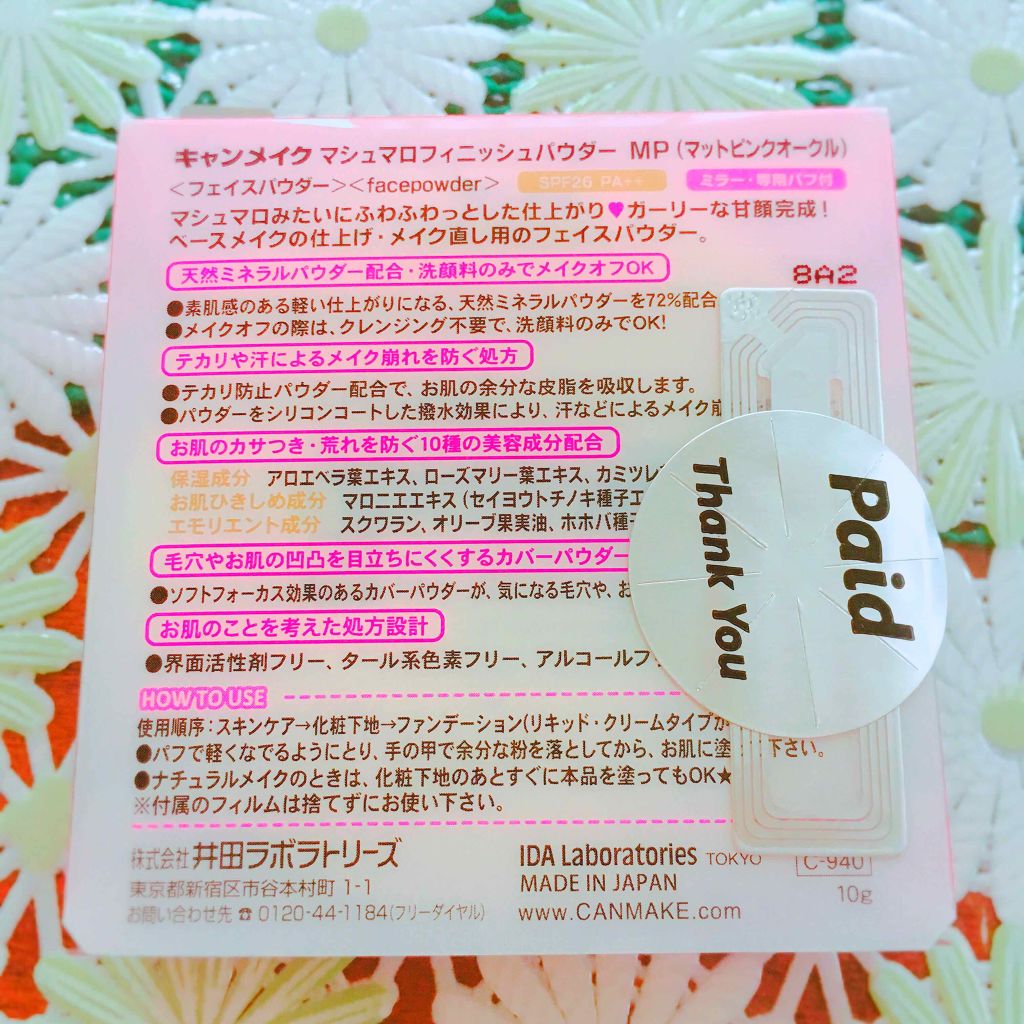 キャンメイク マシュマロフィニッシュパウダー MP (マットピンクオークル)
<フェイスパウダー><facepowder> SPF26 PA++ ミラー・専用パフ付
マシュマロみたいにふわふわっとした仕上がり♥ガーリーな甘顔完成!
ベースメイクの仕上げ・メイク直し用のフェイスパウダー。
天然ミネラルパウダー配合・洗顔料のみでメイクオフOK
8A2
●素肌感のある軽い仕上がりになる、天然ミネラルパウダーを72%配合
●メイクオフの際は、クレンジング不要で、洗顔料のみでOK!
テカリや汗によるメイク崩れを防ぐ処方
●テカリ防止パウダー配合で、お肌の余分な皮脂を吸収します。
●パウダーをシリコンコートした撥水効果により、汗などによるメイク崩
お肌のカサつき・荒れを防ぐ10種の美容成分配合
保湿成分 アロエベラ葉エキス、ローズマリー葉エキス、カミツレ
お肌ひきしめ成分 マロニエエキス(セイヨウトチノキ種子エ
エモリエント成分 スクワラン、オリーブ果実油、ホホバ種子
毛穴やお肌の凹凸を目立ちにくくするカバーパウダー
●ソフトフォーカス効果のあるカバーパウダーが、気になる毛穴や、お
お肌のことを考えた処方設計
●界面活性剤フリー、タール系色素フリー、アルコールフ
Paid
Thank You
HOW TO USE
使用順序:スキンケア→化粧下地→ファンデーション(リキッド・クリームタイプが
●パフで軽くなでるようにとり、手の甲で余分な粉を落としてから、お肌に塗 下さい。
●ナチュラルメイクのときは、化粧下地のあとすぐに本品を塗ってもOK★
※付属のフィルムは捨てずにお使い下さい。
株式会社 井田ラボラトリーズ
東京都新宿区市谷本村町 1-1
お問い合わせ先 ☎ 0120-44-1184(フリーダイヤル)
IDA Laboratories TOKYO
MADE IN JAPAN
www.CANMAKE.com
C-940
10g